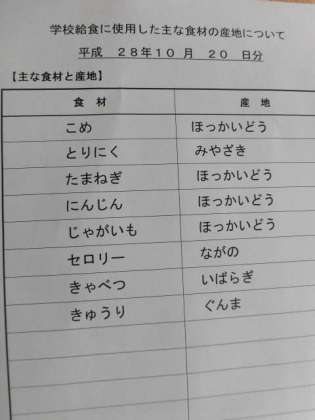 学校給食に使用した主な食材の産地について
平成 28年10 月 20 日分
【主な食材と産地】
食 材 産 地
こめ ほっかいどう
とりにく みやざき
たまねぎ ほっかいどう
にんじん ほっかいどう
じゃがいも ほっかいどう
セロリー ながの
きゃべつ いばらぎ
きゅうり ぐんま